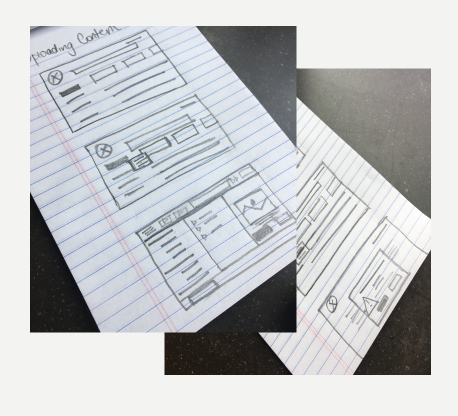 ploading Content